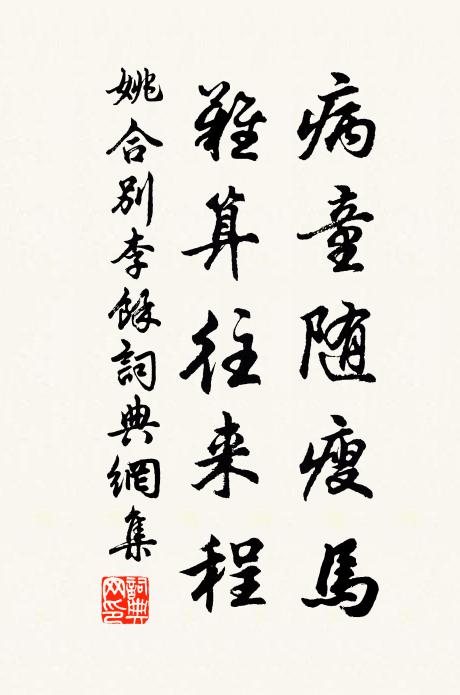 病童随瘦馬
難算往来程
姚合別李餘詞典網集
詞典网印